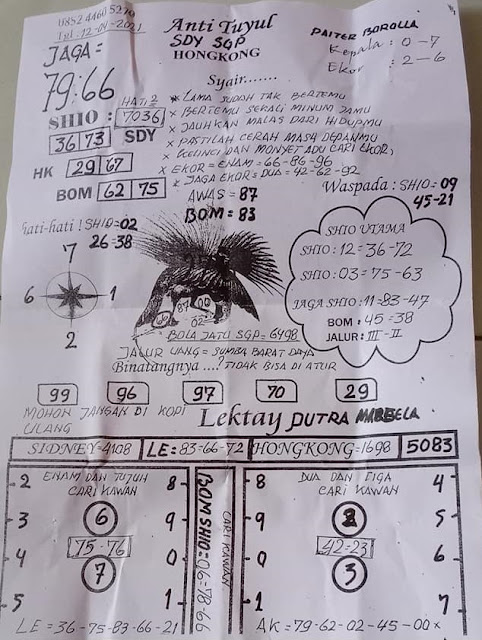 0852 4460 5210
Tgl : 12-04-2021
Anti Tuyul
SDY SGP
HONGKONG
PAITER BOROLLA
Kepala : 0-7
Ekor : 2-6
JAGA =
79:66
Syair.......
HATI 2
SHIO : 7036
36 73 SDY
HK 29 67
BOM 62 75
* LAMA SUDAH TAK BERTEMU
* BERTEMU SEKALI MINUM JAMU
* JAUHKAN MALAS DARI HIDUPMU
* PASTILAH CERAH MASA DEPANMU
* KELINCI DAN MONYET ADU CARI EKOR,
* EKOR = ENAM = 66-86-96
* JAGA EKOR = DUA = 42-62-92
AWAS = 87
BOM = 83
Waspada : SHIO = 09
45-21
Hati-hati ! SHIO = 02
26=38
7
6 1
2
SHIO UTAMA
SHIO : 12 = 36-72
SHIO : 03 = 75-63
JAGA SHIO : 11=83-47
BOM : 45=38
JALUR : III - II
87 00
02
BOLA JATU SGP = 6498
JALUR UANG = SUMBA BARAT DAYA
Binatangnya ....? TIDAK BISA DI ATUR
99 96 97 70 29
MOHON JANGAN DI KOPI
ULANG
Lektay PUTRA MARBELA
SIDNEY=4108 LE=83-66-72 HONGKONG=1698 5083
ENAM DAN TUJUH
CARI KAWAN
2 8
3 6 9
4 75=76 0
7
5 1
BOM SHIO=06=78-66
CARI KAWAN
DUA DAN TIGA
CARI KAWAN
8 4
9 2 5
0 42=23 6
3
1 7
LE = 36-75-83-66-21
AK = 79-62-02-45-00 x